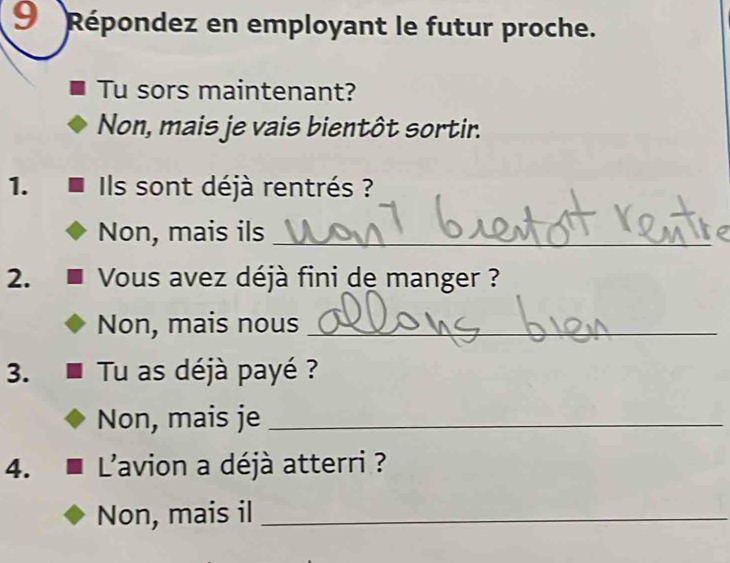 9 Répondez en employant le futur proche.
■ Tu sors maintenant?
◆ Non, mais je vais bientôt sortir.
1. ■ Ils sont déjà rentrés ?
◆ Non, mais ils vont bientôt rentre
2. ■ Vous avez déjà fini de manger ?
◆ Non, mais nous allons bien
3. ■ Tu as déjà payé ?
◆ Non, mais je
4. ■ L'avion a déjà atterri ?
◆ Non, mais il